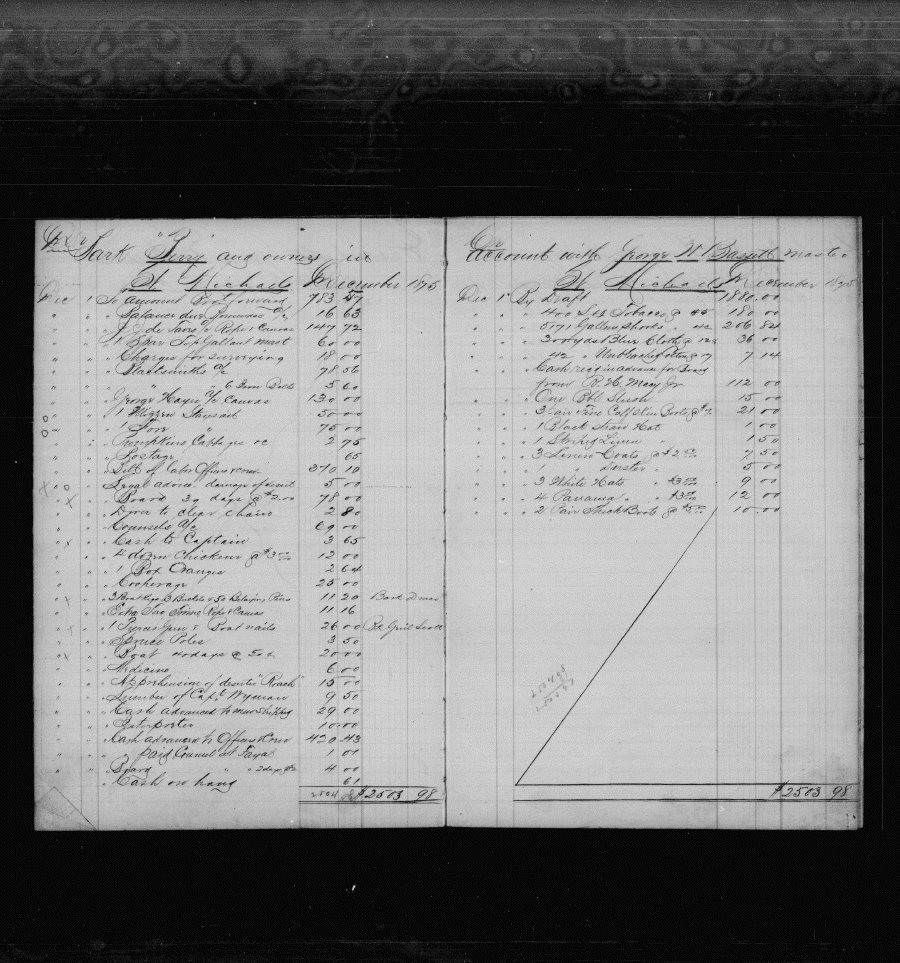 Dr Bark "Perry" and owners in
St. Michaels December 1875
Dec 1 To amount Brot forward 783 47
" " " Balance due 16 63
" " " Rope & Canvas 147 72
" " " 1 Spar Top Gallant mast 60 00
" " " Charges for surveying 18 00
" " " Blacksmiths a/c 78 56
" " " " 6 Iron Bolts 5 60
" " " George Hayes a/c Canvas 130 00
" " " 1 Mizzen Staysail 50 00
" " " 1 Fore " 75 00
" " " Pumpkins Cabbages &c 2 75
" " " Postage 65
" " " Bill of Labor Officers & crew 370 10
" " " Legal advice damage of vessel 5 00
" " " Board 39 days @ $2.00 78 00
" " " Diver to clear chain 2 80
" " " Counsels a/c 69 00
" " " Cash to Captain 3 65
" " " 4 dozen Chickens @ $3.00 12 00
" " " 1 Box Oranges 2 64
" " " Cooperage 25 00
" " " 3 Boat Kegs 3 Buckets & 50 Belaying Pins 11 20
" " " Extra Rope & Canvas 11 16
" " " Gun & Boat nails 26 00
" " " Spruce Poles 3 50
" " " Boat 40 days @ 50c 20 00
" " " Medicine 6 00
" " " Apprehension of deserter "Roach" 15 00
" " " Lumber of Capt Wyman 9 50
" " " Cash advanced to men shipped 29 00
" " " Interpreter 10 00
" " " Cash advanced to Officers & Crew 420 43
" " " " paid Counsul at Fayal 1 01
" " " Board " " 2 days @ 2 4 00
" Cash on hand 61
2504 $2503 98
Cr
account with George W Bassett master
St. Michaels December 1875
Dec 1 By Draft 1850.00
" " " 400 Lbs Tobacco @ 45 180 00
" " " 5171 Gallons Shooks " 4c 206 84
" " " 300 yds Blue Cloth @ 12c 36 00
" " " 42 " Unbleached Cotton @ 17 7 14
" " " Cash recd in advance for Board
from R. H. Macy Jr 112 00
" " " One Bbl Slush 15 00
" " " 3 Pair Fine Calf Skin Boots @ $7 21.00
" " " 1 Black Straw Hat 1 00
" " " 1 Linen 1 50
" " " 3 Linen Coats @ $2.50 7 50
" " " 1 " Duster " 5 00
" " " 3 White Hats " $3.00 9 00
" " " 4 Panama " " $3.00 12 00
" " " 2 Pair Thick Boots @ $5.00 10.00
$2503 98